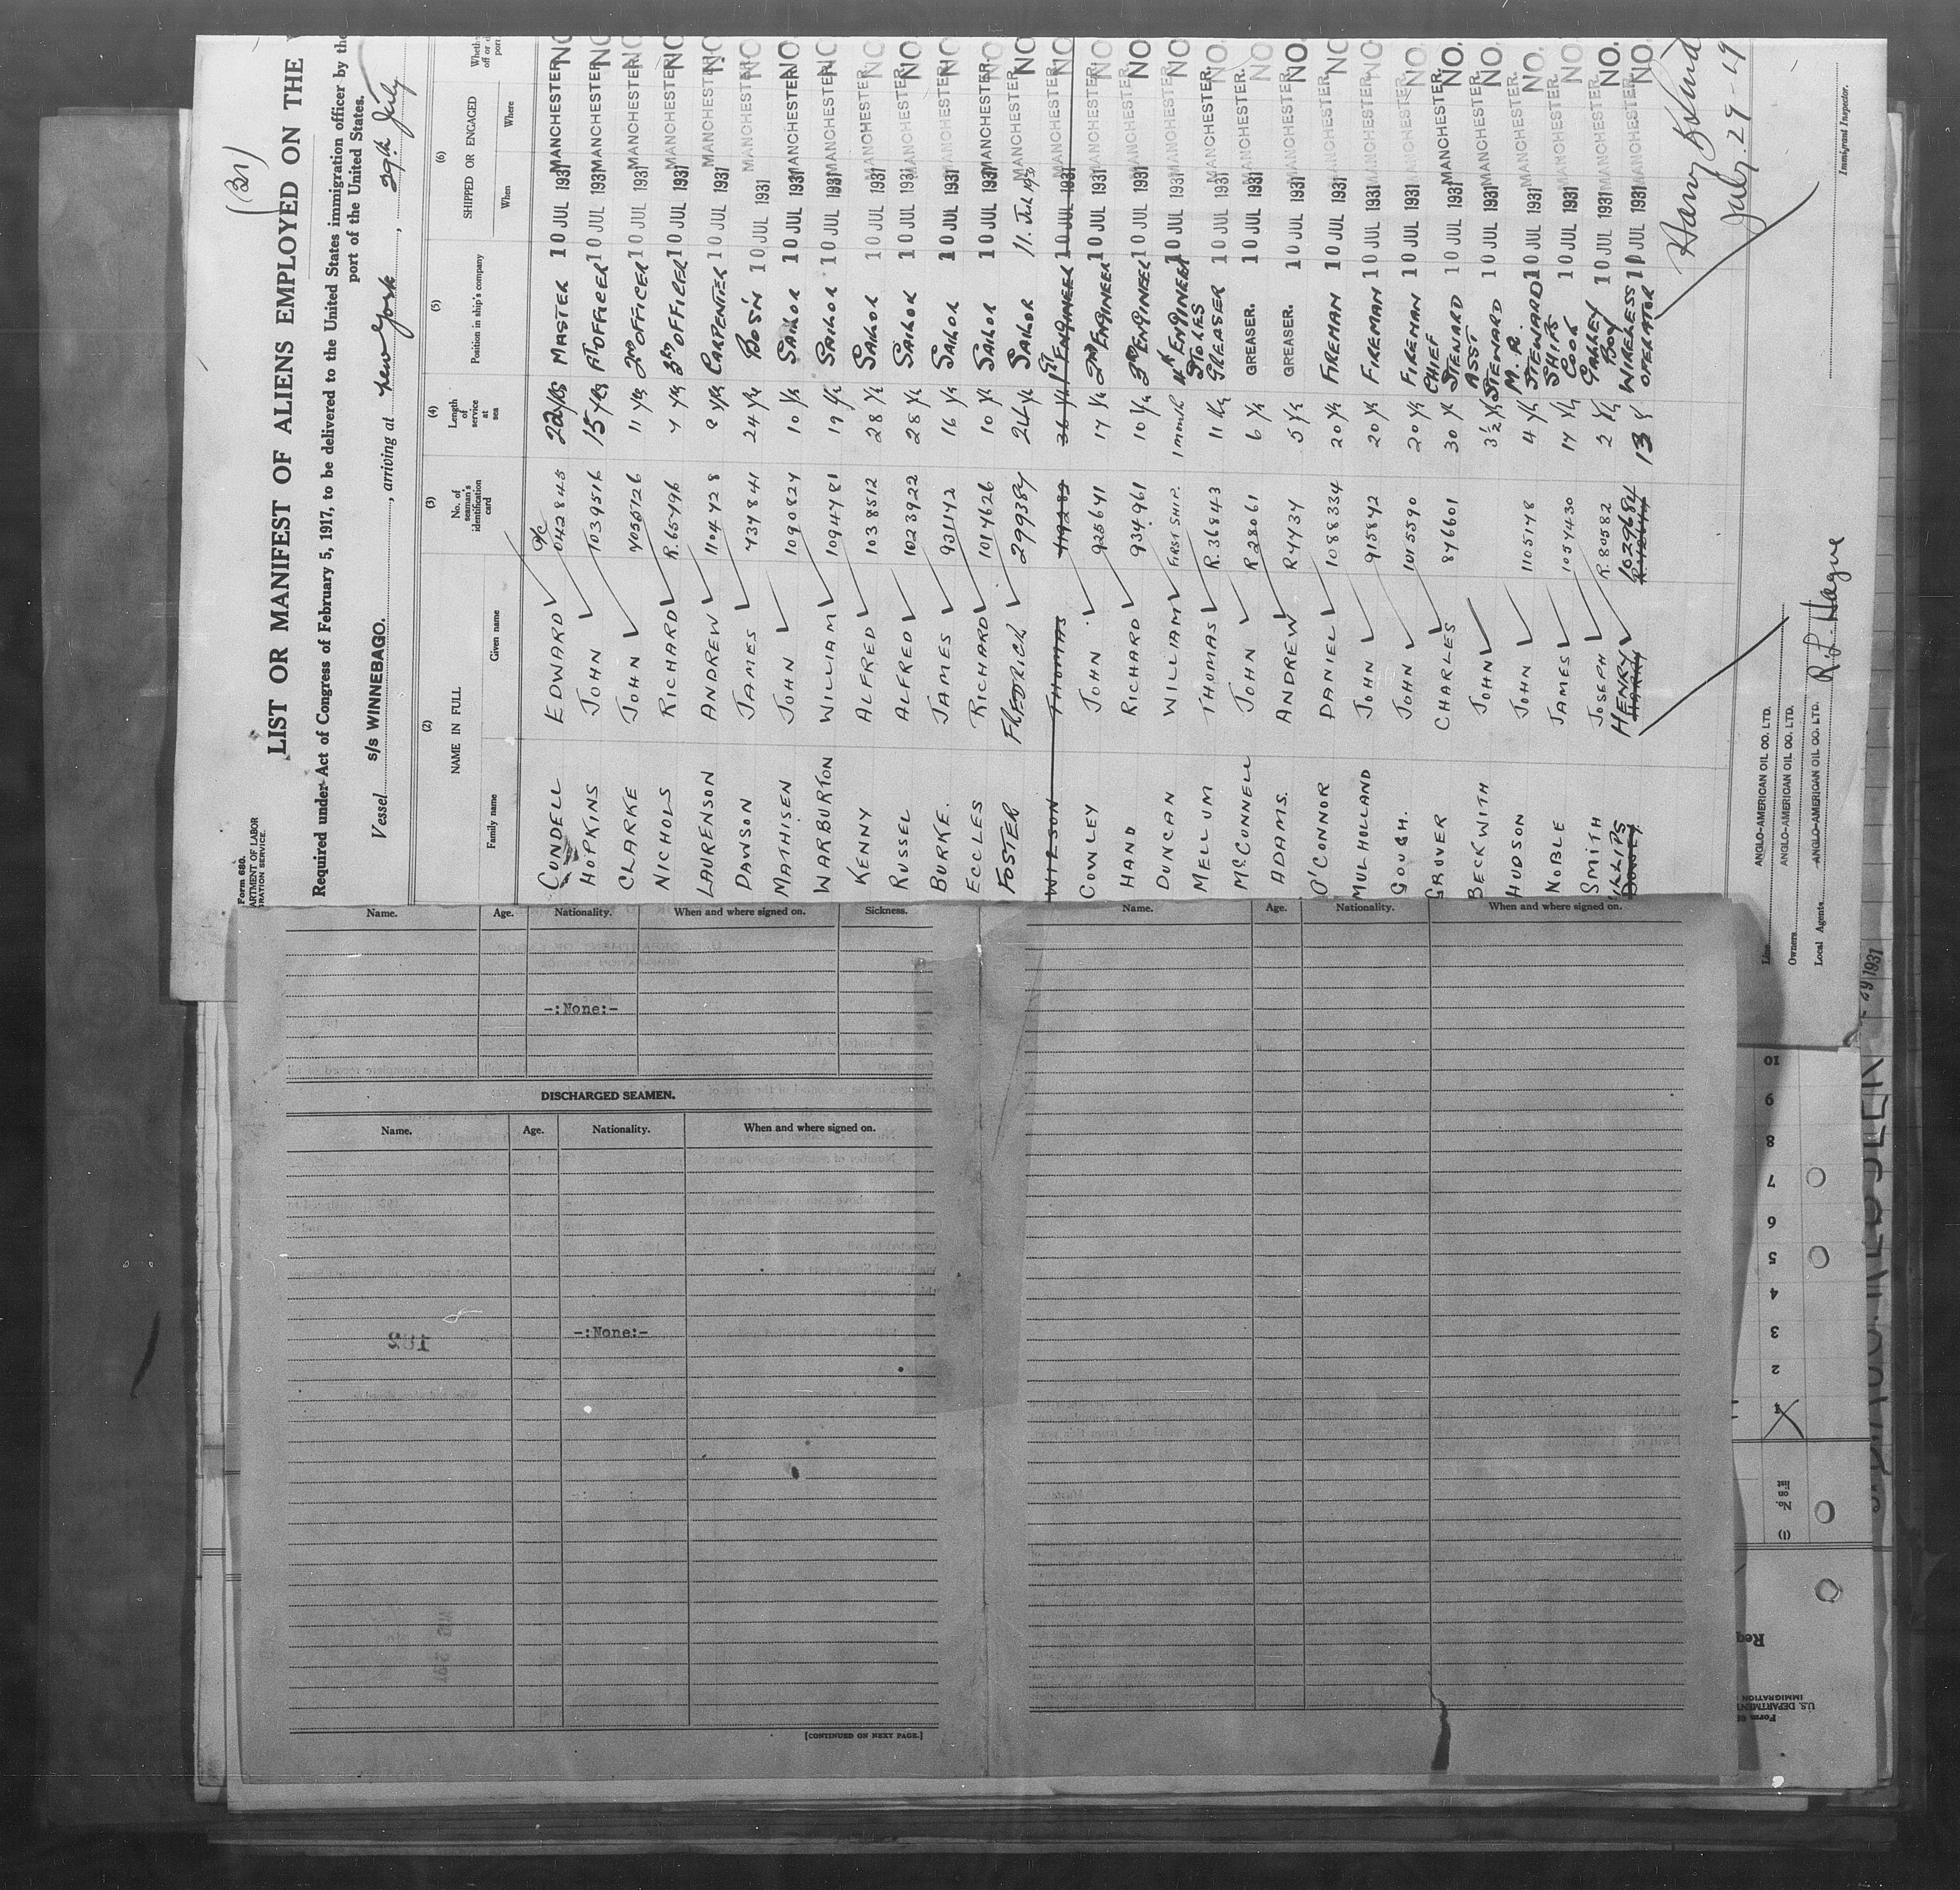 Form 680.
LIST OR MANIFEST OF ALIENS EMPLOYED ON THE
Required under Act of Congress of February 5, 1917, to be delivered to the United States immigration officer by the
port of the United States.
Vessel S/S WINNEBAGO., arriving at New York, 29th July
(1) (2) (3) (4) (5) (6)
NAME IN FULL No. of seaman's identification card Length of service at sea Position in ship's company SHIPPED OR ENGAGED
Family name Given name When Where
CUNDELL EDWARD 042845 22 YRS MASTER 10 JUL 1931 MANCHESTER NO
HOPKINS JOHN 1039516 15 YRS 1ST OFFICER 10 JUL 1931 MANCHESTER NO
CLARKE JOHN 11 YRS 2ND OFFICER 10 JUL 1931 MANCHESTER NO
NICHOLS RICHARD R.65496 3RD OFFICER 10 JUL 1931 MANCHESTER NO
LAURENSON ANDREW CARPENTER 10 JUL 1931 MANCHESTER NO
DAWSON JAMES 24 Yrs BOSN 10 JUL 1931 MANCHESTER NO
MATHISEN JOHN 1090824 10 Yrs SAILOR 10 JUL 1931 MANCHESTER NO.
WARBURTON WILLIAM 1094781 19 Yrs SAILOR 10 JUL 1931 MANCHESTER NO
KENNY ALFRED 1038512 28 Yrs SAILOR 10 JUL 1931 MANCHESTER NO
RUSSEL ALFRED 1023922 28 Yrs SAILOR 10 JUL 1931 MANCHESTER NO
BURKE. JAMES 931142 16 Yrs SAILOR 10 JUL 1931 MANCHESTER NO
ECCLES RICHARD 1014626 10 Yrs SAILOR 10 JUL 1931 MANCHESTER NO
FOSTER FREDRICH 299384 24 Yrs SAILOR 11. Jul 1931 MANCHESTER NO
WILSON THOMAS 36 Yrs 1ST ENGINEER 10 JUL 1931 MANCHESTER NO
COWLEY JOHN 925641 17 Yrs 2ND ENGINEER 10 JUL 1931 MANCHESTER NO
HAND RICHARD 934961 10 Yrs 3RD ENGINEER 10 JUL 1931 MANCHESTER NO.
DUNCAN WILLIAM FIRST SHIP. 1 month 4th ENGINEER 10 JUL 1931 MANCHESTER NO
MELLUM THOMAS R.36843 11 Yrs STORES GREASER 10 JUL 1931 MANCHESTER. NO.
McCONNELL JOHN R28061 6 Yrs GREASER. 10 JUL 1931 MANCHESTER. NO
ADAMS. ANDREW R4434 5 Yrs GREASER. 10 JUL 1931 MANCHESTER. NO.
O'CONNOR DANIEL 1088334 20 Yrs FIREMAN 10 JUL 1931 MANCHESTER NO
MULHOLLAND JOHN 915842 20 Yrs FIREMAN 10 JUL 1931 MANCHESTER NO
GOUGH. JOHN 1015590 20 Yrs FIREMAN 10 JUL 1931 MANCHESTER NO.
GROVER CHARLES 846601 30 Yrs CHIEF STEWARD 10 JUL 1931 MANCHESTER. NO.
BECKWITH JOHN 3½ Yrs ASST STEWARD 10 JUL 1931 MANCHESTER. NO.
HUDSON JOHN 1105748 4 Yrs M.R. STEWARD 10 JUL 1931 MANCHESTER. NO.
NOBLE JAMES 1054430 14 Yrs SHIPS COOK 10 JUL 1931 MANCHESTER. NO
SMITH JOSEPH R.80582 2 Yrs GALLEY BOY 10 JUL 1931 MANCHESTER. NO.
HENRY 1029684 13 Y WIRELESS OPERATOR 10 JUL 1931 MANCHESTER. NO.
HARRY
July. 29-
Immigrant Inspector.
Line ANGLO-AMERICAN OIL CO. LTD.
Owners ANGLO-AMERICAN OIL CO. LTD.
Local Agents ANGLO-AMERICAN OIL CO. LTD. R.L. Hague
Name. Age. Nationality. When and where signed on. Sickness.
-:None:-
DISCHARGED SEAMEN.
Name. Age. Nationality. When and where signed on.
-:None:-
[CONTINUED ON NEXT PAGE.]
Name. Age. Nationality. When and where signed on.
10
9
8
7
6
5
4
3
2
1
(1)
No. on list
U.S. DEPARTMENT
IMMIGRATION
29 1931